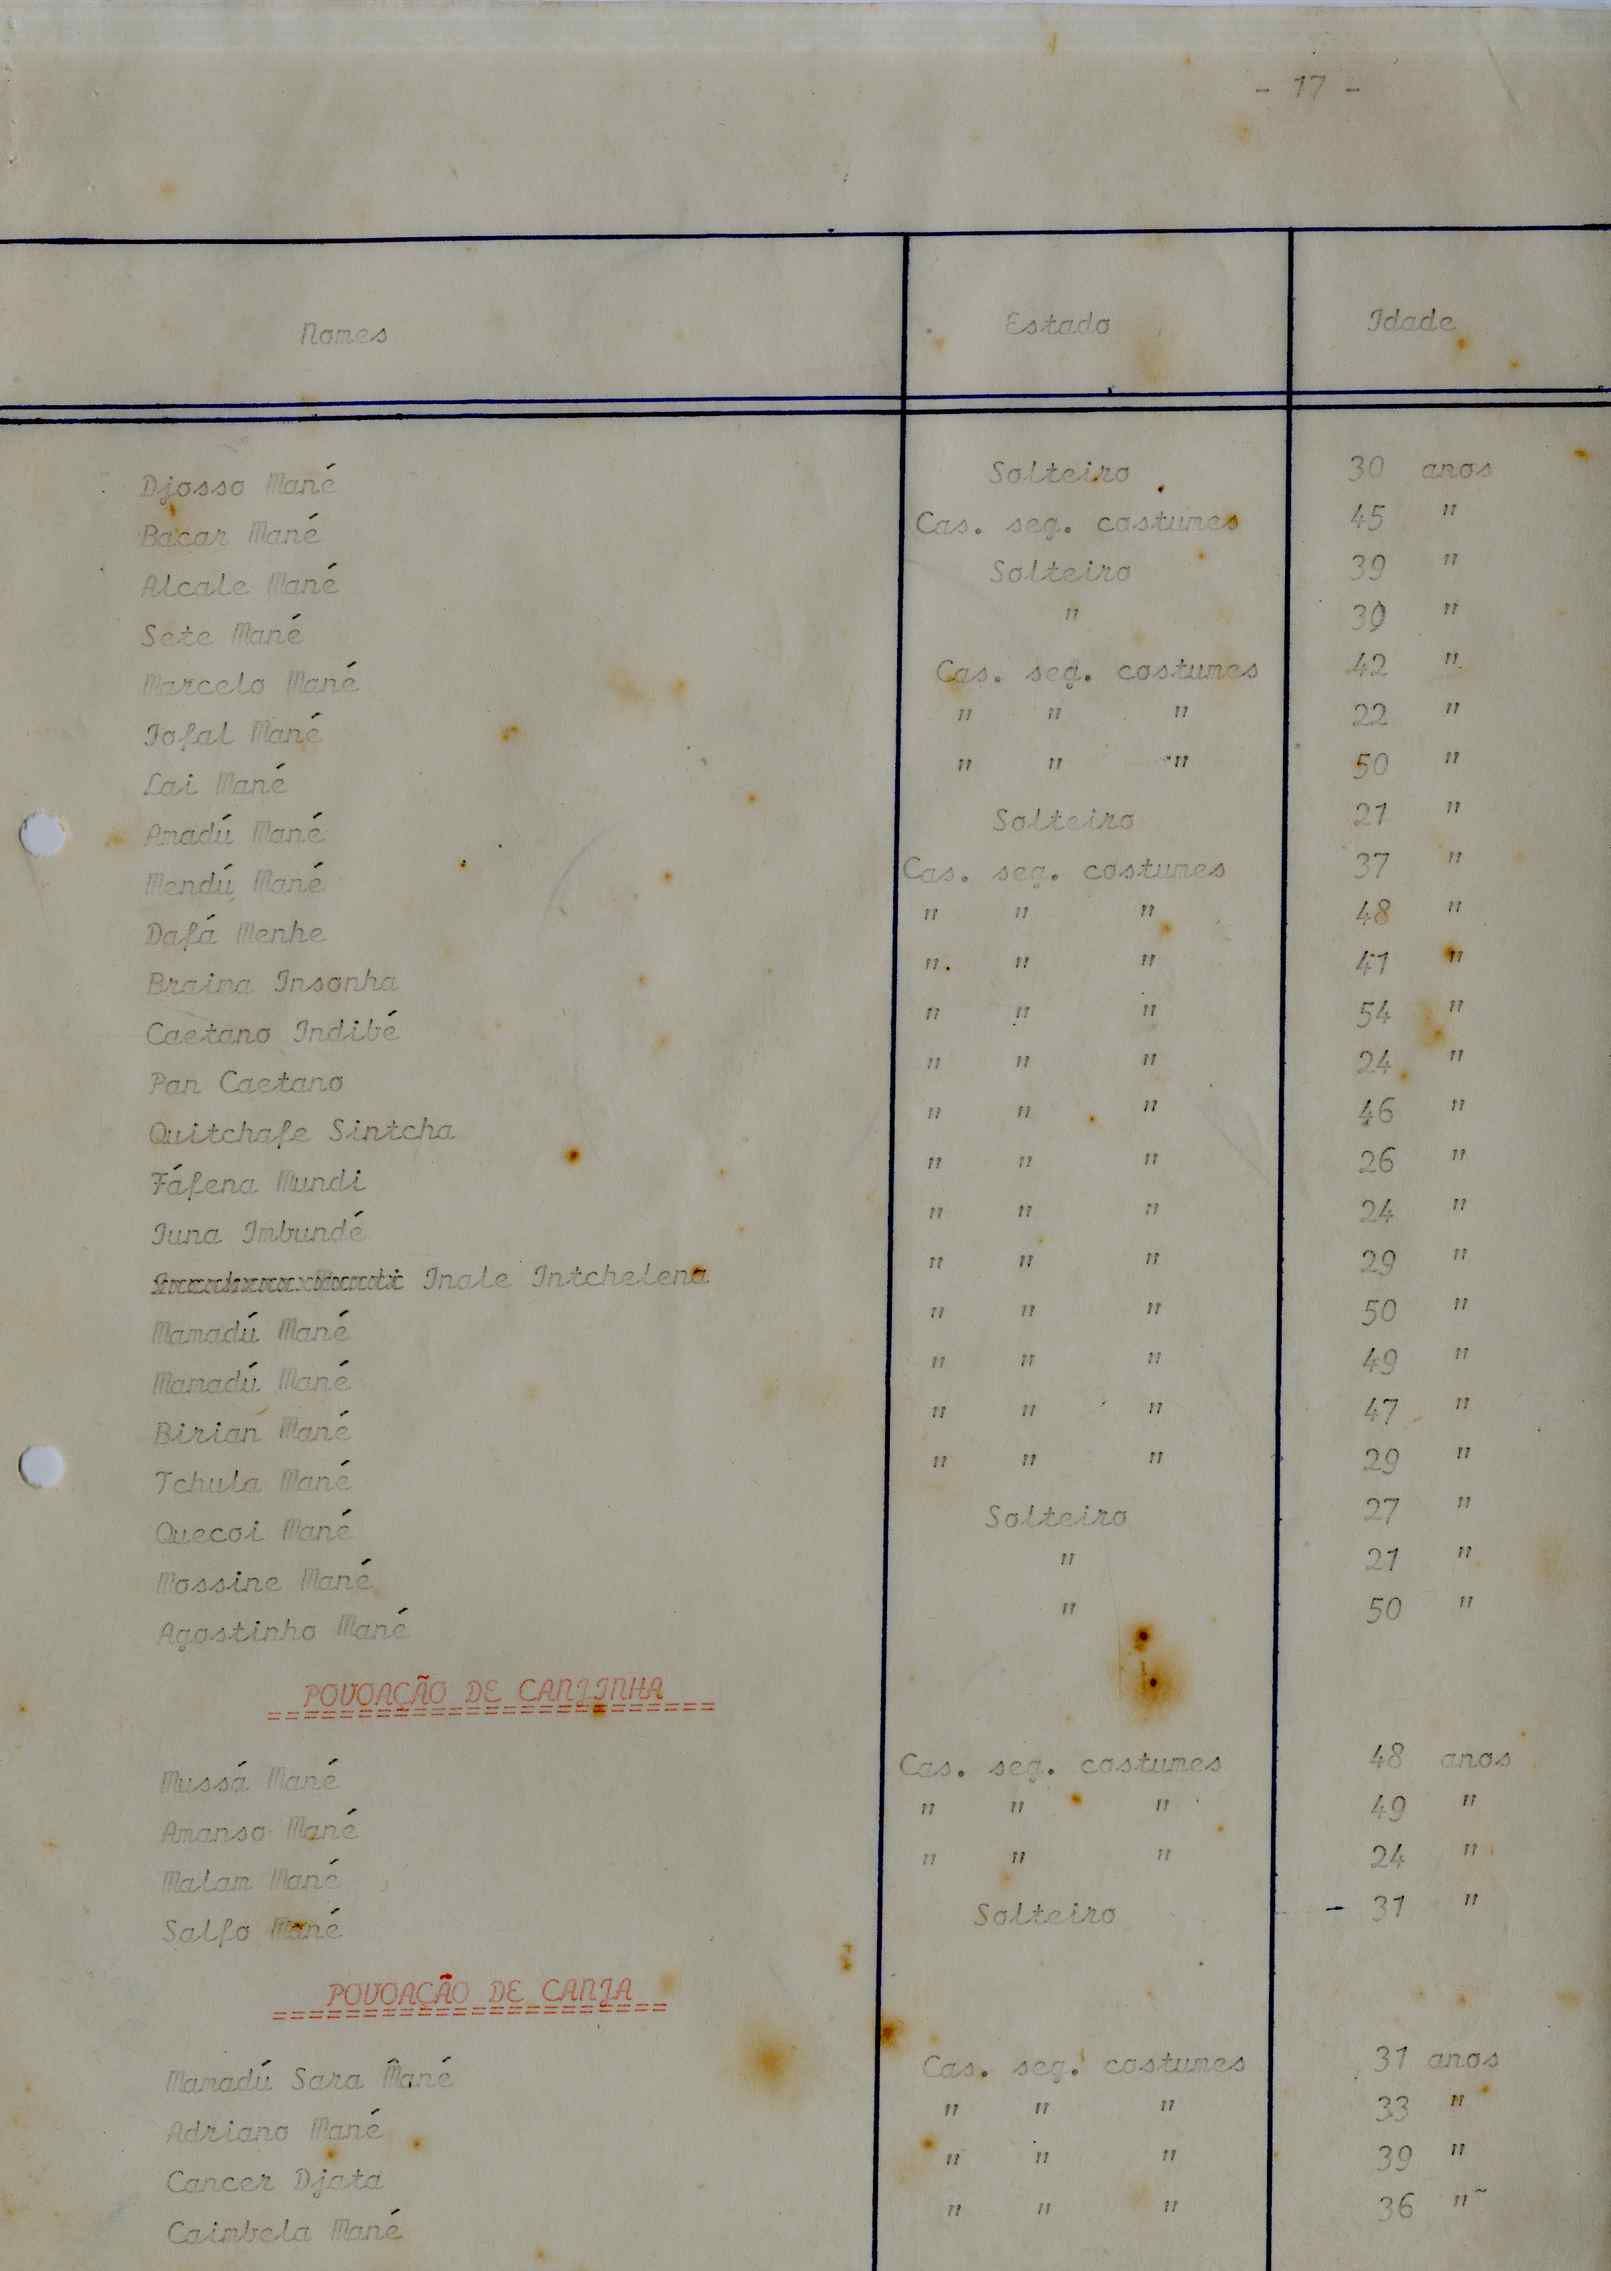 - 17 -
Nomes Estado Idade
Djosso Mané Solteiro 30 anos
Bacar Mané Cas. seg. costumes 45 "
Alcale Mané Solteiro 39 "
Sete Mané " 39 "
Marcelo Mané Cas. seg. costumes 42 "
Jofal Mané " " " 22 "
Lai Mané " " " 50 "
Amadú Mané Solteiro 21 "
Mendú Mané Cas. seg. costumes 37 "
Dafá Menhe " " " 48 "
Braima Insonha " " " 41 "
Caetano Indibé " " " 54 "
Pan Caetano " " " 24 "
Quitchafe Sintcha " " " 46 "
Fáfena Mundi " " " 26 "
Iuna Imbundé " " " 24 "
Inale Intchelena " " " 29 "
Mamadú Mané " " " 50 "
Mamadú Mané " " " 49 "
Birian Mané " " " 47 "
Tchula Mané " " " 29 "
Quecoi Mané Solteiro 27 "
Mossine Mané " 21 "
Agostinho Mané " 50 "
POVOAÇÃO DE CANJINHA
Mussá Mané Cas. seg. costumes 48 anos
Amanso Mané " " " 49 "
Malam Mané " " " 24 "
Salfo Mané Solteiro - 31 "
POVOAÇÃO DE CANJA
Mamadú Sara Mané Cas. seg. costumes 31 anos
Adriano Mané " " " 33 "
Cancer Djata " " " 39 "
Caimbela Mané " " " 36 "